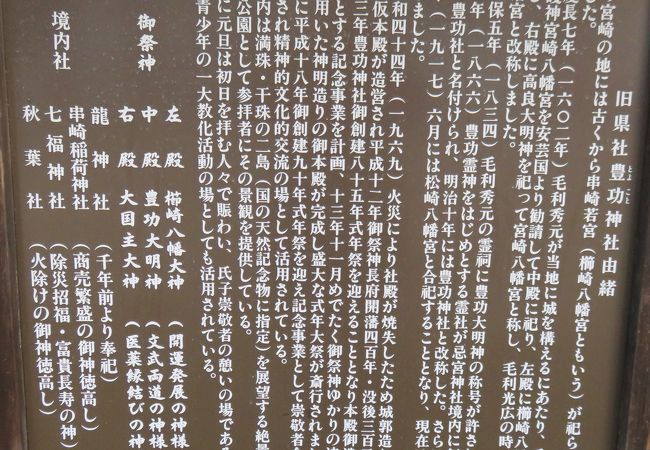 旧県社豊功神社由緒
宮崎の地には古くから串崎若宮（櫛崎八幡宮ともいう）が祀ら
した。
慶長七年（一六〇二年）毛利秀元が当地に城を構えるにあたり、
護神宮崎八幡宮を安芸国より勧請して中殿に祀り、左殿に櫛崎八
、右殿に高良大明神を祀って宮崎八幡宮と称し、毛利光広の時
宮と改称しました。
保五年（一八三四）毛利秀元の霊祠に豊功大明神の称号が許さ
年（一八六六）豊功霊神をはじめとする霊社が忌宮神社境内に
豊功社と名付けられ、明治十年には豊功神社と改称した。さら
（一九一七）六月には松崎八幡宮と合祀することとなり、現在
ました。
和四十四年（一九六九）火災により社殿が焼失したため城郭造
仮本殿が造営され平成十二年御祭神長府開藩四百年・没後三百
三年豊功神社御創建八十五年式年祭を迎えることとなり本殿御造
とする記念事業を計画、十三年十一月めでたく御祭神ゆかりの
用いた神明造りの御本殿が完成し盛大な式年大祭が斎行されま
に平成十八年御創建九十年式年祭を迎え記念事業として崇敬者
され精神的文化的交流の場として活用されている。
内は満珠・干珠の二島（国の天然記念物に指定）を展望する絶景
公園として参拝者にその景観を提供している。
に元旦は初日を拝む人々で賑わい、氏子崇敬者の憩いの場であ
青少年の一大教化活動の場としても活用されている。
御祭神 左殿 櫛崎八幡大神（開運発展の神様
中殿 豊功大明神（文武両道の神様
右殿 大国主大神（医薬縁結びの神
境内社 龍神社（千年前より奉祀）
串崎稲荷神社（商売繁盛の御神徳高し）
七福神社（除災招福・富貴長寿の神）
秋葉社（火除けの御神徳高し）